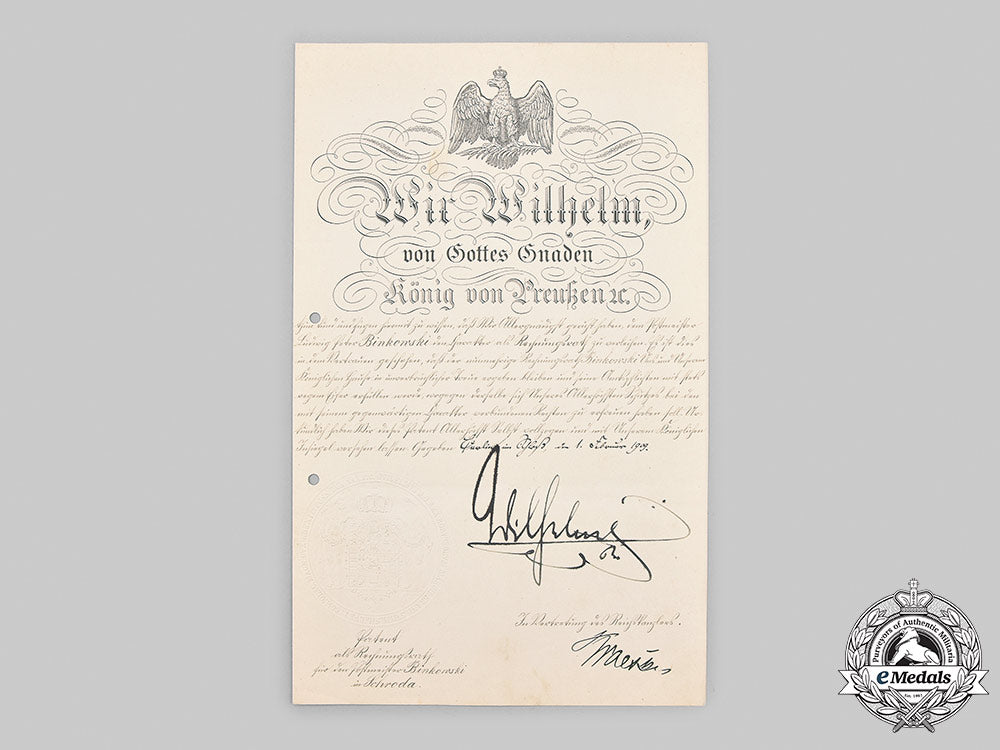 Wir Wilhelm,
von Gottes Gnaden
König von Preußen ꝛc.
Thun kund und fügen hiermit zu wissen, daß Wir Allergnädigst geruht haben, dem Postmeister
Ludwig Peter Binkowski den Charakter als Rechnungsrath zu verleihen. Es ist dies
in dem Vertrauen geschehen, daß der nunmehrige Rechnungsrath Binkowski Uns und Unserem
Königlichen Hause in unverbrüchlicher Treue ergeben bleiben und seine Amtspflichten mit stets
regem Eifer erfüllen werde, wogegen derselbe sich Unseres Allerhöchsten Schutzes bei den
mit seinem gegenwärtigen Charakter verbundenen Rechten zu erfreuen haben soll. Ur-
kundlich haben Wir dieses Patent Allerhöchst Selbst vollzogen und mit Unserem Königlichen
Insiegel versehen lassen. Gegeben Berlin im Schloß, den 1. Februar
Wilhelm
In Vertretung des Reichskanzlers.
Patent
als Rechnungsrath
für den Postmeister Binkowski
in Schroda.
Purveyors of Authentic Militaria
eMedals